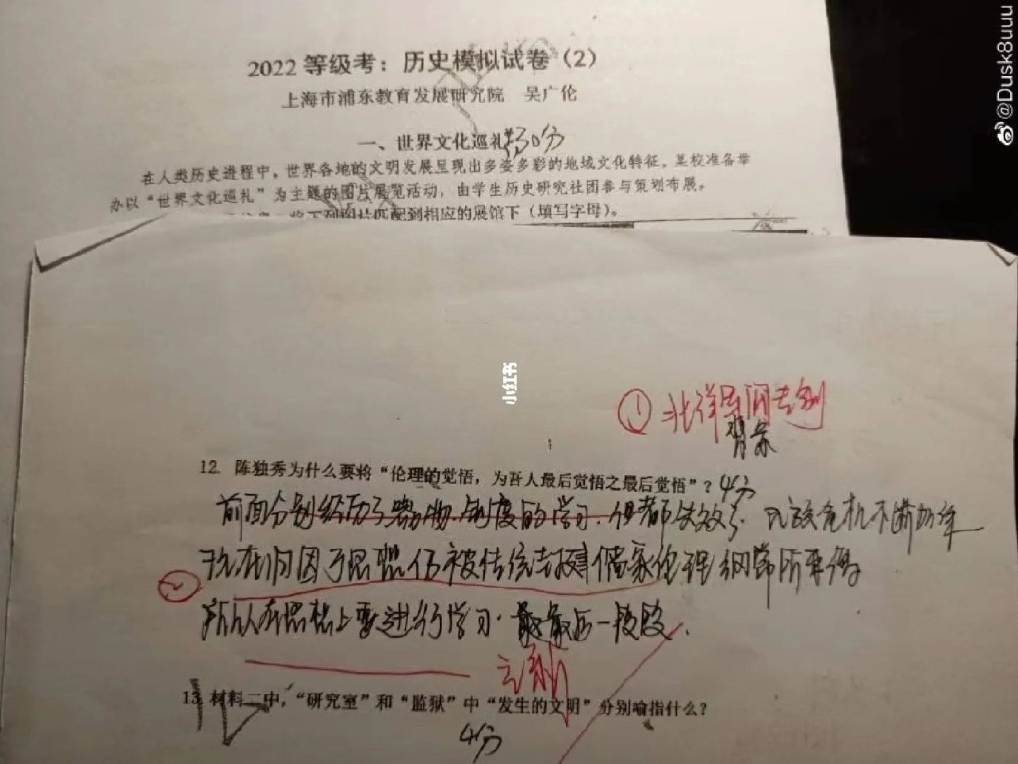 @Dusk8uuu
2022 等级考：历史模拟试卷（2）
上海市浦东教育发展研究院 吴广伦
一、世界文化巡礼 30分
在人类历史进程中，世界各地的文明发展呈现出多姿多彩的地域文化特征。某校准备举
办以“世界文化巡礼”为主题的图片展览活动，由学生历史研究社团参与策划布展。
将下列图片匹配到相应的展馆下（填写字母）。
小红书
① 北洋军阀专制
背景
12. 陈独秀为什么要将“伦理的觉悟，为吾人最后觉悟之最后觉悟”？4分
前面分别经历了器物、制度的学习，但都失败了，民族危机不断加深
② 现在归因于思想仍被传统封建儒家伦理纲常所束缚
所以在思想上要进行学习，最后一阶段。
13. 材料二中，“研究室”和“监狱”中“发生的文明”分别喻指什么？
4分